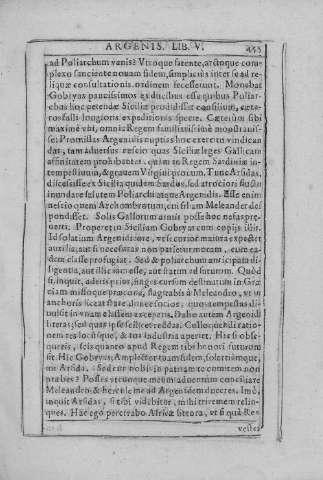 ARGENIS. LIB. V.
ad Poliarchum vanisè Vtroque fatente, arctoque com-
plexo sanciente nouam fidem, simplicius inter se ad re-
liquæ consultationis ordinem secesserunt. Monebat
Gobryas paucissimos ex ducibus esse quibus Poliar-
chus hoc petendæ Siciliæ prodidisset consilium, cæte-
ros falli longioris expeditionis specie. Cæterùm sibi
maximè vni, omnia Regem familiarissimè monstrauis-
se: Promissas Argenidis nuptias hoc exercitu vindican
das, tam aduersus rescito quas Siciliæ leges Gallicam
affinitatem prohibeant. quàm in Regem Sardiniæ in-
tempestiuum, & grauem Virgini procum. Tunc Arsidas,
discessisse ex Sicilia quidem Sardus, sed atrociori fluctu
inundare salutem Poliarchi atque Argenidis. Esse enim
nescio quem Archombrotum, cui filiam Meleander des
pondisset. Solis Gallorum armis posse hoc nefas præ-
uenti. Properet in Siciliam Gobryas cum copiis ibit.
Id solatium Argenidi fore, vt securior maiora expectet
auxilia; aut si necessitas non patietur moram, cum ea-
dem classe profugiat. Sed & poliarchum anticipata di-
ligentia, aut illic iam esse, aut statim ad futurum. Quòd
si, inquit, aderis prior, finges cursum destinatum in Græ
ciam missoque præcone, flagitabis à Meleandro, vt in
anchoris liceat stare dum et socios; quos tempestas di-
uulsit in vnam classem exceperis. Dabo autem Argenidi
litteras; seu quas ipse scellet reddas. Colloquii tibi ratio-
nem res locusque, & tua industria aperiet. Hic si obse-
queris, scis quanto apud Regem tibi honori futurum
sit. Hic Gobryas; Amplector tuam fidem, solertiamque,
mi Arsida. Sed cur nobis in patriam te comitem non
præbes? Posses vtrumque metum aduentum conciliare
Meleandro, & hercle me ad Argenidem ducere. Imò,
inquit Arsidas, si tibi videbitur, mihi triremem relin-
ques. Hac ego percurabo Africæ littora, vt si quà Re-